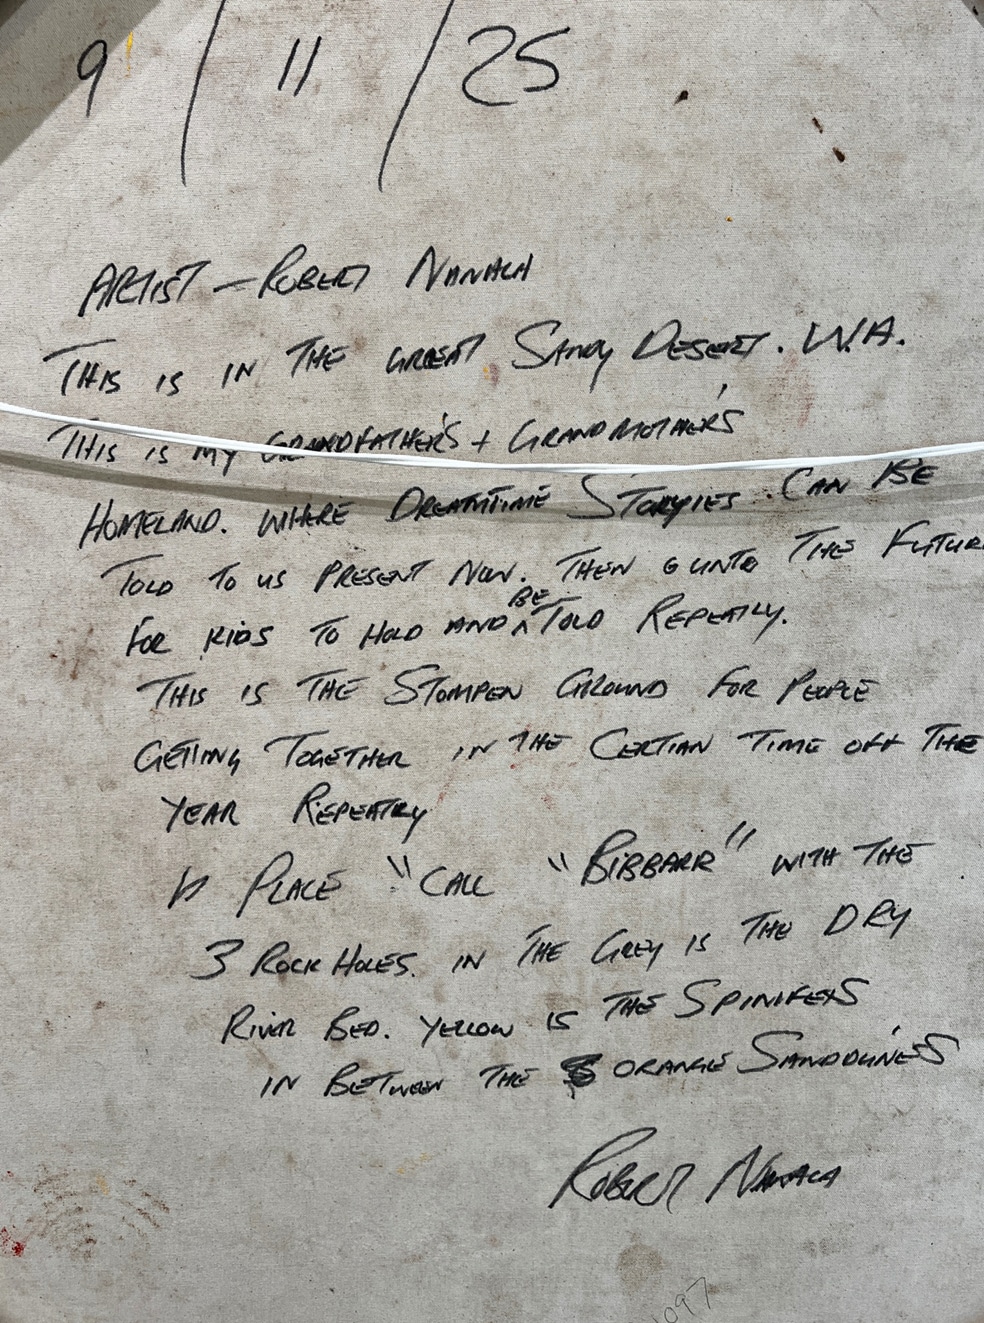 9 / 11 / 25
ARTIST — ROBERT NANALA
THIS IS IN THE GREAT SANDY DESERT. W.A.
THIS IS MY GRANDFATHER'S + GRANDMOTHER'S
HOMELAND. WHERE DREAMTIME STORYIES. CAN BE
TOLD TO US PRESENT NOW. THEN UNTO THE FUTURE
FOR KIDS TO HOLD AND BE TOLD REPEATLY.
THIS IS THE STOMPEN GROUND FOR PEOPLE
GETTING TOGETHER IN THE CERTIAN TIME OFF THE
YEAR REPEATLY
PLACE "CALL "BIBBARR" WITH THE
3 ROCK HOLES. IN THE GREY IS THE DRY
RIVER BED. YELLOW IS THE SPINIFEXS
IN BETWEEN THE ORANGE SANDDUNE'S
ROBERT NANALA
1097